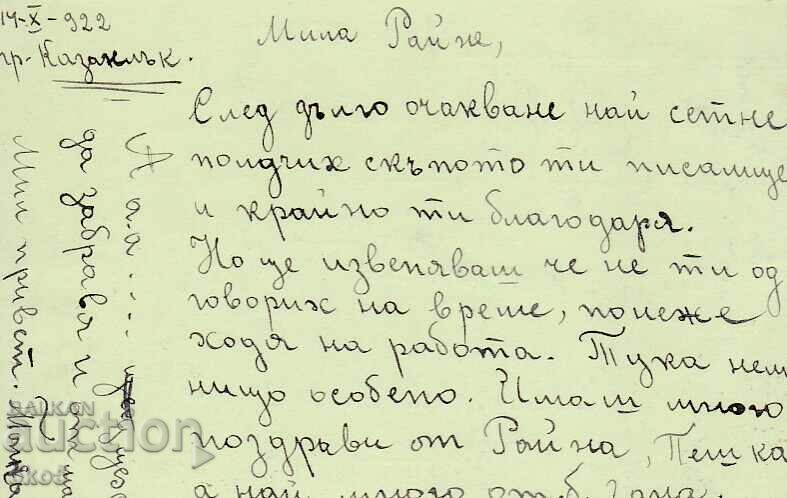 14-X-922
гр. Казанлък.
Мила Райне,
След дълго очакване най сетне
получих скъпото ти писъмце
и крайно ти благодаря.
Но ще извеняваш че не ти од
говорих на време, понеже
ходя на работа. Тука нем
нищо особено. Имаш много
поздрави от Райна, Пешка
а най много от б.
А а.а....
да забравя и от
Мил привет.
BALKAN
auction